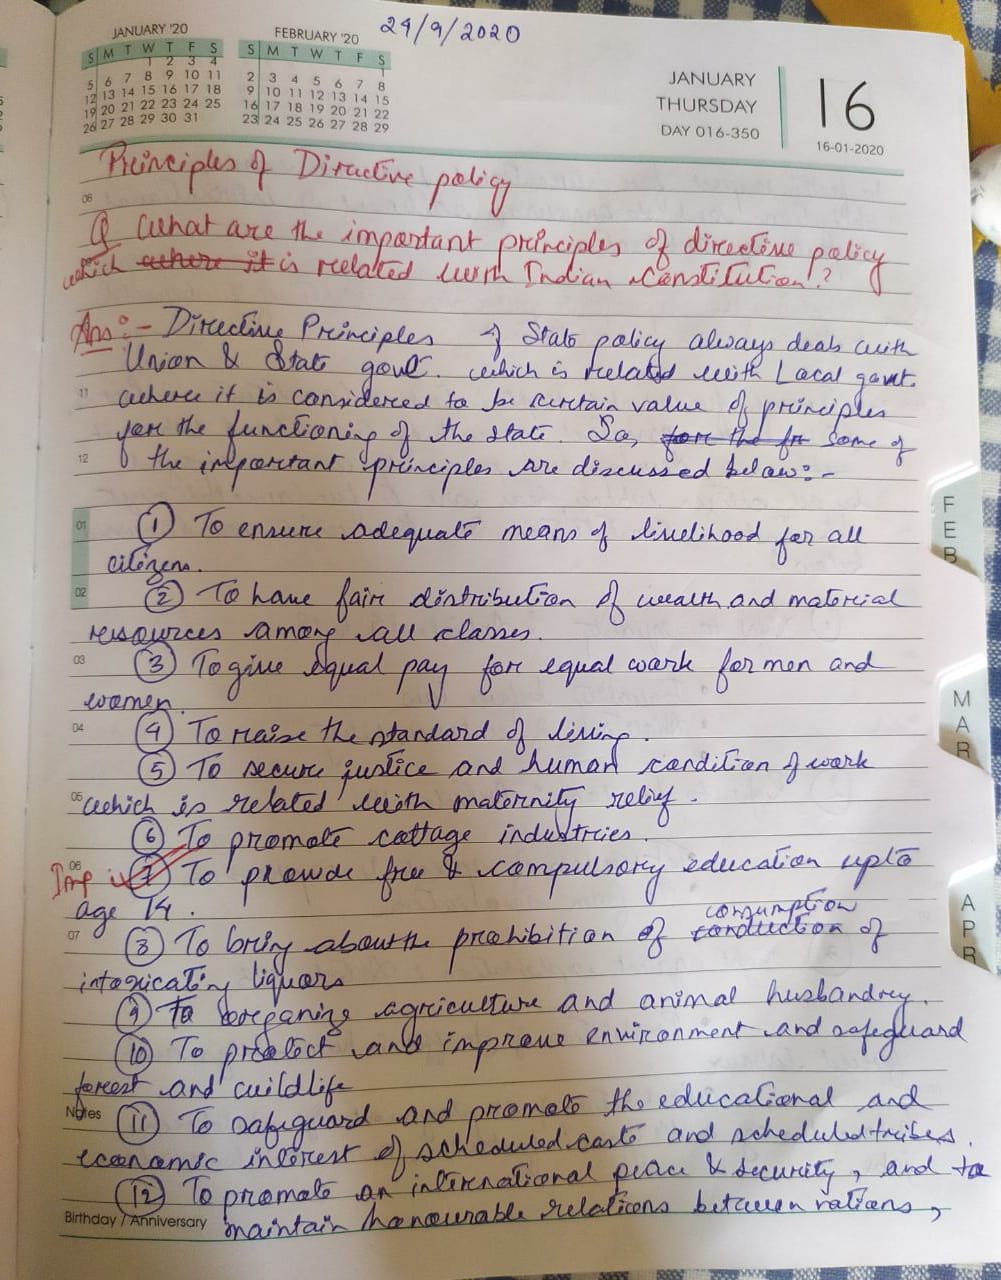 JANUARY '20
S M T W T F S
1 2 3 4
5 6 7 8 9 10 11
12 13 14 15 16 17 18
19 20 21 22 23 24 25
26 27 28 29 30 31
FEBRUARY '20
S M T W T F S
1
2 3 4 5 6 7 8
9 10 11 12 13 14 15
16 17 18 19 20 21 22
23 24 25 26 27 28 29
29/9/2020
JANUARY
THURSDAY
DAY 016-350
16
16-01-2020
Principles of Directive policy
08
Q What are the important principles of directive policy
which where it is related with Indian Constitution?
Ans:- Directive Principles of State policy always deals with
Union & State govt. which is related with Local govt.
11 where it is considered to be certain value of principles
for the functioning of the state. So, for the fn some of
12 the important principles are discussed below:-
01 (1) To ensure adequate means of livelihood for all
citizens.
02 (2) To have fair distribution of wealth and material
resources among all classes.
03 (3) To give equal pay for equal work for men and
women.
04 (4) To raise the standard of living.
(5) To secure justice and human condition of work
05 which is related with maternity relief.
(6) To promote cottage industries.
06 Imp (7) To provide free & compulsory education upto
age 14.
consumption
07 (8) To bring about the prohibition of conduction of
intoxicating liquors
(9) To organing agriculture and animal husbandry.
(10) To protect and improve environment and safeguard
forest and wildlife
Notes (11) To safeguard and promote the educational and
economic interest of scheduled caste and scheduled tribes.
(12) To promote an international peace & security, and to
Birthday / Anniversary maintain honourable relations between nations,
FEB
MAR
APR